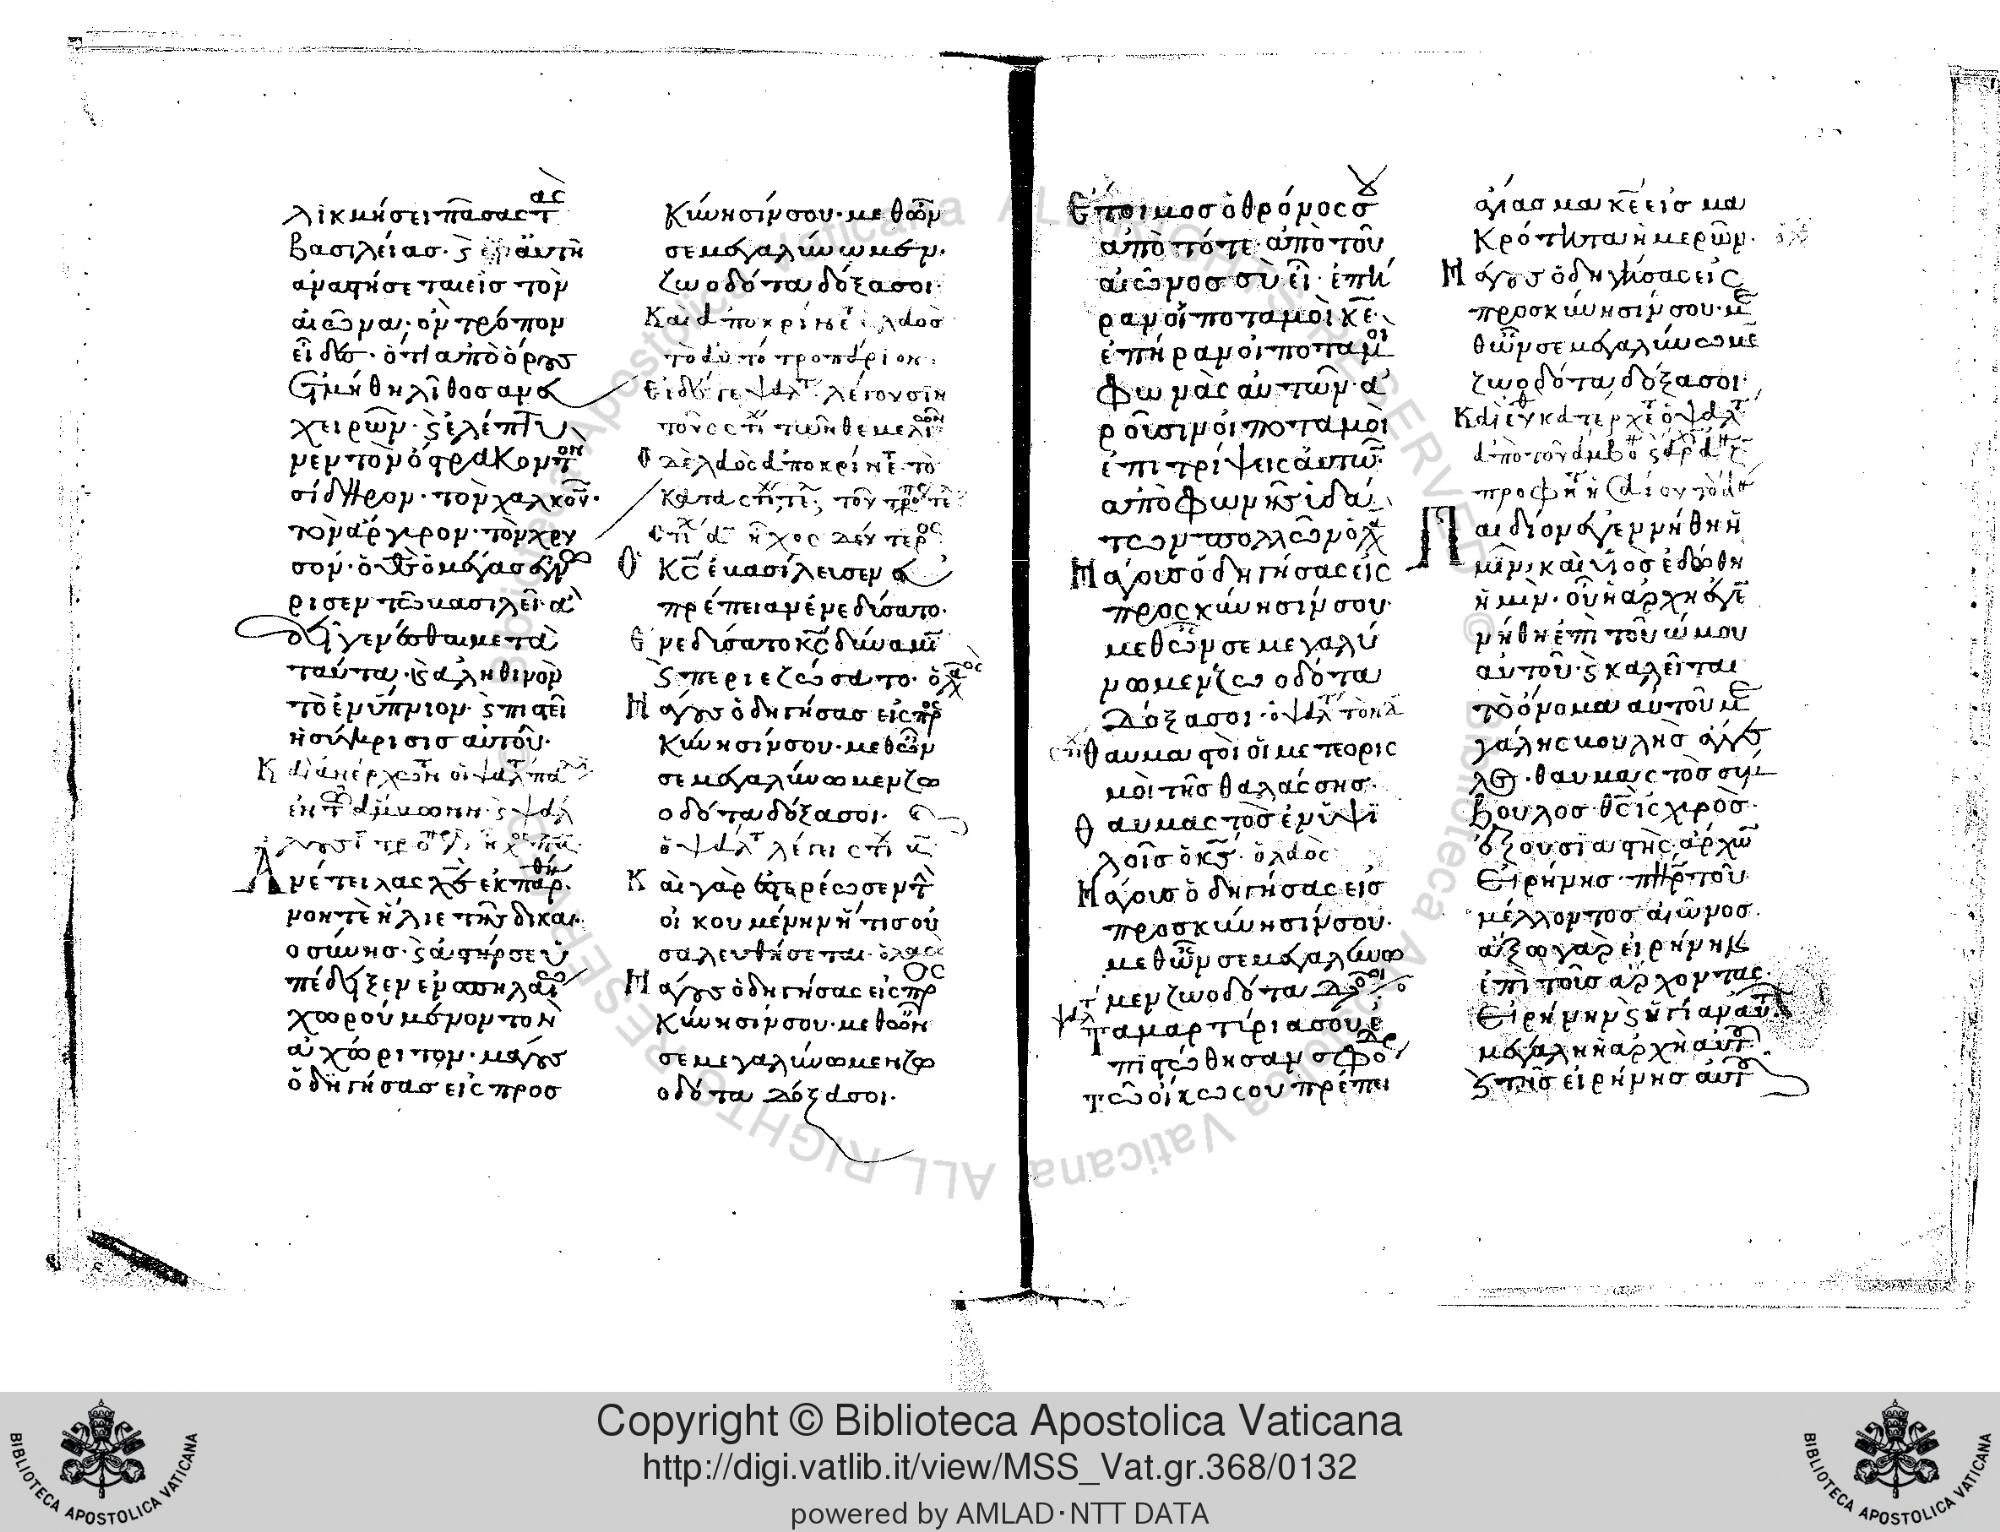 λικμήσει πάσας τὰς
βασιλείας· ϛ αὐτὴ
ἀναστήσεται εἰς τὸν
αἰῶνα· ὃν τρόπον
εἶδες· ὅτι ἀπὸ ὄρους
ἐτμήθη λίθος ἄνευ
χειρῶν· ϛ ἐλέπτυ
νεν τὸν ὄστρακον τὸν
σίδηρον· τὸν χαλκόν·
τὸν ἄργυρον· τὸν χρυ
σόν· ὁ θς ὁ μέγας ἐγνώ
ρισεν τῶ βασιλεῖ· ἃ
δεῖ γενέσθαι μετὰ
ταῦτα· ϛ ἀληθινὸν
τὸ ἐνύπνιον· ϛ πιστὴ
ἡ σύγκρισις αὐτοῦ·
Ἀνέτειλας χε ἐκ παρθέ
νου νοητὲ ἥλιε τῆς δικαι
οσύνης· ϛ ἀστήρ σε ὑ
πέδειξεν ἐν σπηλαίω
χωρούμενον τὸν
ἀχώριτον· μάγους
ὁδηγήσας εἰς προσ
κύνησίν σου· μεθ ὧν
σε μεγαλύνωμεν·
ζωοδότα δόξα σοι·
Καὶ ἀποκρίνετ ὁ λαὸς
τὸ αὐτὸ τροπάριον·
Ὁ κς ἐβασίλευσεν εὐ
πρέπειαν ἐνεδύσατο·
ἐνεδύσατο κς δύναμιν
ϛ περιεζώσατο· ὁ λαὸς
Μάγους ὁδηγήσας εἰς προσ
κύνησίν σου· μεθ ὧν
σε μεγαλύνωμεν ζω
οδότα δόξα σοι·
ὁ ψάλτ λέγει στίχ
Καὶ γὰρ ἐστερέωσεν τὴν
οἰκουμένην ἥτις οὐ
σαλευθήσεται· ὁ λαὸς
Μάγους ὁδηγήσας εἰς προσ
κύνησίν σου· μεθ ὧν
σε μεγαλύνωμεν ζω
οδότα δόξα σοι·
Ἕτοιμος ὁ θρόνος σου
ἀπὸ τότε· ἀπὸ τοῦ
αἰῶνος σὺ εἶ· ἐπῆ
ραν οἱ ποταμοὶ κε·
ἐπῆραν οἱ ποταμοὶ
φωνὰς αὐτῶν· ἀ
ροῦσιν οἱ ποταμοὶ
ἐπιτρίψεις αὐτῶν·
ἀπὸ φωνῆς ὑδά
των πολλῶν ὁ λχ
Μάγους ὁδηγήσας εἰς
προσκύνησίν σου·
μεθ ὧν σε μεγαλύ
νωμεν ζωοδότα
δόξα σοι· ὁ ψάλτ
Θαυμαστοὶ οἱ μετεορισ
μοὶ τῆς θαλάσσης·
θαυμαστὸς ἐν ὑψι
λοῖς ὁ κς· ὁ λαὸς
Μάγους ὁδηγήσας εἰς
προσκύνησίν σου·
μεθ ὧν σε μεγαλύνω
μεν ζωοδότα δόξα σοι
Τὰ μαρτίριά σου ἐ
πιστώθησαν σφόδρα
τῶ οἴκω σου πρέπει
ἁγίασμα κε εἰς μα
κρότητα ἡμερῶν· ὁ λχ
Μάγους ὁδηγήσας εἰς
προσκύνησίν σου· με
θ ὧν σε μεγαλύνωμεν
ζωοδότα δόξα σοι·
Παιδίον ἐγεννήθη ἡ
μῖν· καὶ υἱὸς ἐδόθη
ἡμῖν· οὗ ἡ ἀρχὴ ἐγε
νήθη ἐπὶ τοῦ ὤμου
αὐτοῦ· ϛ καλεῖται
τὸ ὄνομα αὐτοῦ με
γάλης βουλῆς ἄγγε
λος· θαυμαστὸς σύμ
βουλος θς ἰσχυρὸς·
ἐξουσιαστὴς· ἄρχων
εἰρήνης· πηρ τοῦ
μέλλοντος αἰῶνος·
ἄξω γὰρ εἰρήνην
ἐπὶ τοὺς ἄρχοντας·
εἰρήνην ϛ ὑγίαν αὐτῶ·
μεγάλη ἡ ἀρχὴ αὐτοῦ
ϛ τῆς εἰρήνης αὐτοῦ
Copyright © Biblioteca Apostolica Vaticana
http://digi.vatlib.it/view/MSS_Vat.gr.368/0132
powered by AMLAD·NTT DATA
BIBLIOTECA APOSTOLICA VATICANA
BIBLIOTECA APOSTOLICA VATICANA